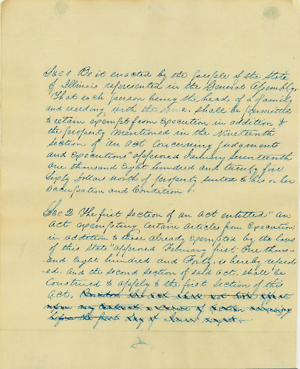 Sec 1 Be it enacted by the people of the State
of Illinois represented in the General Assembly
That each person being the head of a family
and residing with the same, shall be permitted
to retain exempt from execution in addition to
the property mentioned in the Nineteenth
section of an act concerning Judgments
and Executions" approved January Seventeenth
one thousand eight hundred and twenty five
Sixty Dollars worth of property suited to his or her
Occupation and Condition
Sec 2 The first section of an act entitled "an
Act exempting certain articles from Execution
in addition to those already exempted by the laws
of this State" approved February first One thous
and eight hundred and Forty, is hereby repeal
ed. and the second section of said Act, shall be
construed to apply to the first section of this
act,